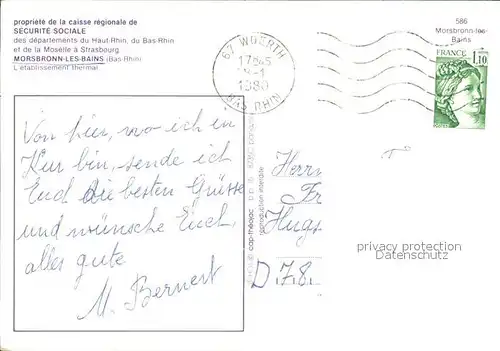 propriété de la caisse régionale de
SÉCURITÉ SOCIALE
des départements du Haut-Rhin, du Bas-Rhin
et de la Moselle à Strasbourg
MORSBRONN-LES-BAINS (Bas-Rhin)
L'établissement thermal
67 WOERTH
1980
BAS RHIN
586
Morsbronn-les-
Bains
FRANCE
1,10
Von hier, wo ich in
Kur bin, sende ich
Euch die besten Grüsse
und wünsche Euch,
alles gute
M. Bernert
cap-théojac
reproduction interdite
Herrn
Fr
Hugs
D.78
privacy protection
Datenschutz